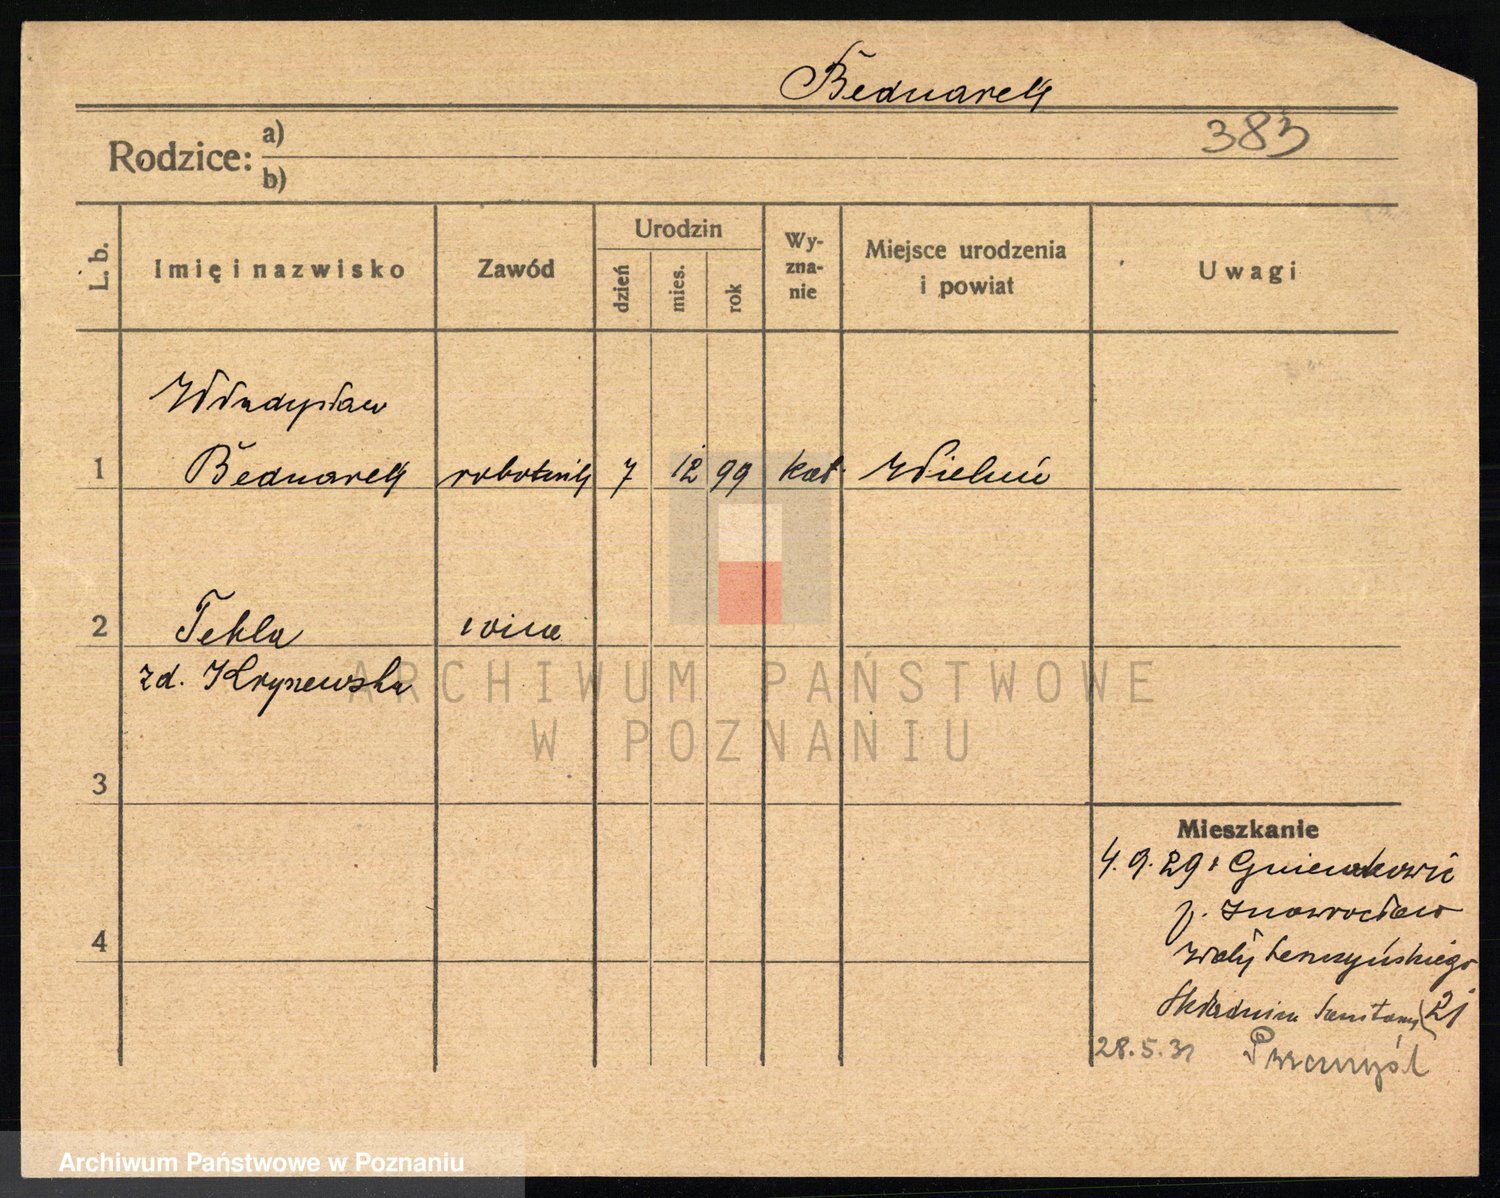 Bednarek
383
Rodzice: a)
b)
L. b.
Imię i nazwisko
Zawód
Urodzin
dzień
mies.
rok
Wy-
zna-
nie
Miejsce urodzenia
i powiat
Uwagi
Władysław
1 Bednarek robotnik 7 12 99 kat.
2 Tekla
zd.
ARCHIWUM PAŃSTWOWE
W POZNANIU
3
Mieszkanie
4.9.29 Gniewkowie
p. Inowrocław
4
Wały
21
28.5.31 Przemyśl
Archiwum Państwowe w Poznaniu